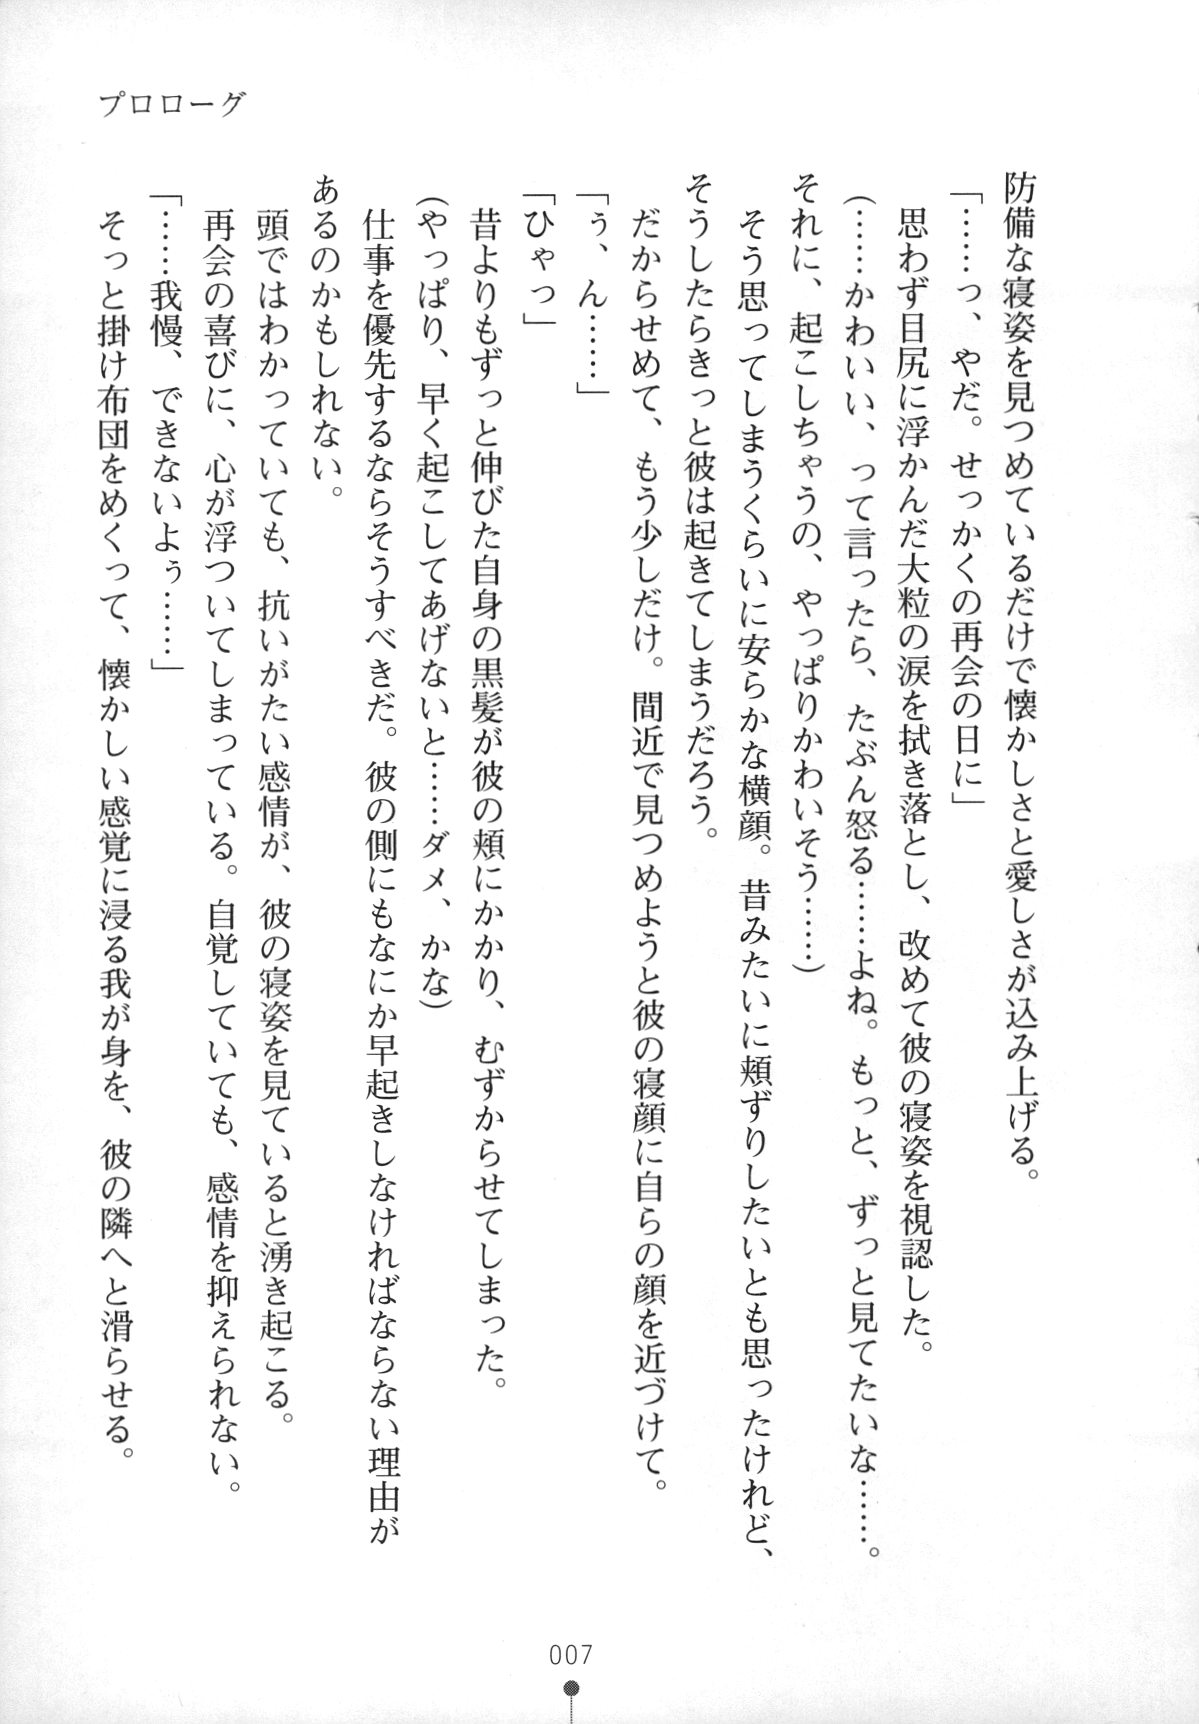 プロローグ
防備な寝姿を見つめているだけで懐かしさと愛しさが込み上げる。
「……っ、やだ。せっかくの再会の日に」
思わず目尻に浮かんだ大粒の涙を拭き落とし、改めて彼の寝姿を視認した。
(……かわいい、って言ったら、たぶん怒る……よね。もっと、ずっと見てたいな……。
それに、起こしちゃうの、やっぱりかわいそう……)
そう思ってしまうくらいに安らかな横顔。昔みたいに頬ずりしたいとも思ったけれど、
そうしたらきっと彼は起きてしまうだろう。
だからせめて、もう少しだけ。間近で見つめようと彼の寝顔に自らの顔を近づけて。
「ぅ、ん……」
「ひゃっ」
昔よりもずっと伸びた自身の黒髪が彼の頬にかかり、むずからせてしまった。
(やっぱり、早く起こしてあげないと……ダメ、かな)
仕事を優先するならそうすべきだ。彼の側にもなにか早起きしなければならない理由が
あるのかもしれない。
頭ではわかっていても、抗いがたい感情が、彼の寝姿を見ていると湧き起こる。
再会の喜びに、心が浮ついてしまっている。自覚していても、感情を抑えられない。
「……我慢、できないよぅ……」
そっと掛け布団をめくって、懐かしい感覚に浸る我が身を、彼の隣へと滑らせる。
007